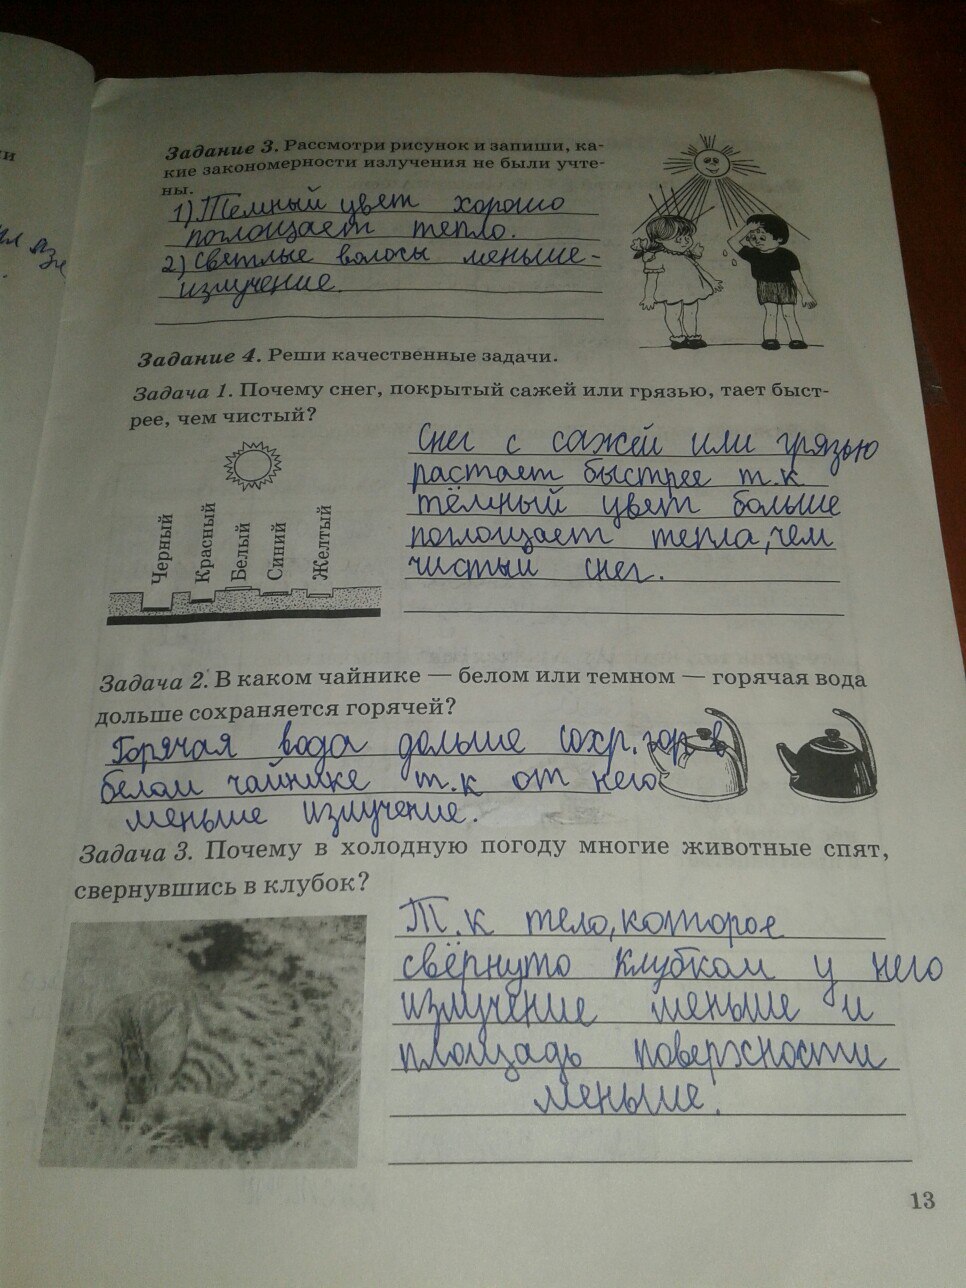 Задание 3. Рассмотри рисунок и запиши, ка-
кие закономерности излучения не были учте-
ны.
1) Тёмный цвет хорошо
поглощает тепло.
2) Светлые волосы меньше-
излучение.
Задание 4. Реши качественные задачи.
Задача 1. Почему снег, покрытый сажей или грязью, тает быст-
рее, чем чистый?
Снег с сажей или грязью
растает быстрее т.к
тёмный цвет больше
поглощает тепла, чем
чистый снег.
Черный
Красный
Белый
Синий
Желтый
Задача 2. В каком чайнике — белом или темном — горячая вода
дольше сохраняется горячей?
Горячая вода дольше сохр. гор в
белом чайнике т.к от него
меньше излучение.
Задача 3. Почему в холодную погоду многие животные спят,
свернувшись в клубок?
Т.к тело, которое
свёрнуто клубком у него
излучение меньше и
площадь поверхности
меньше.
13